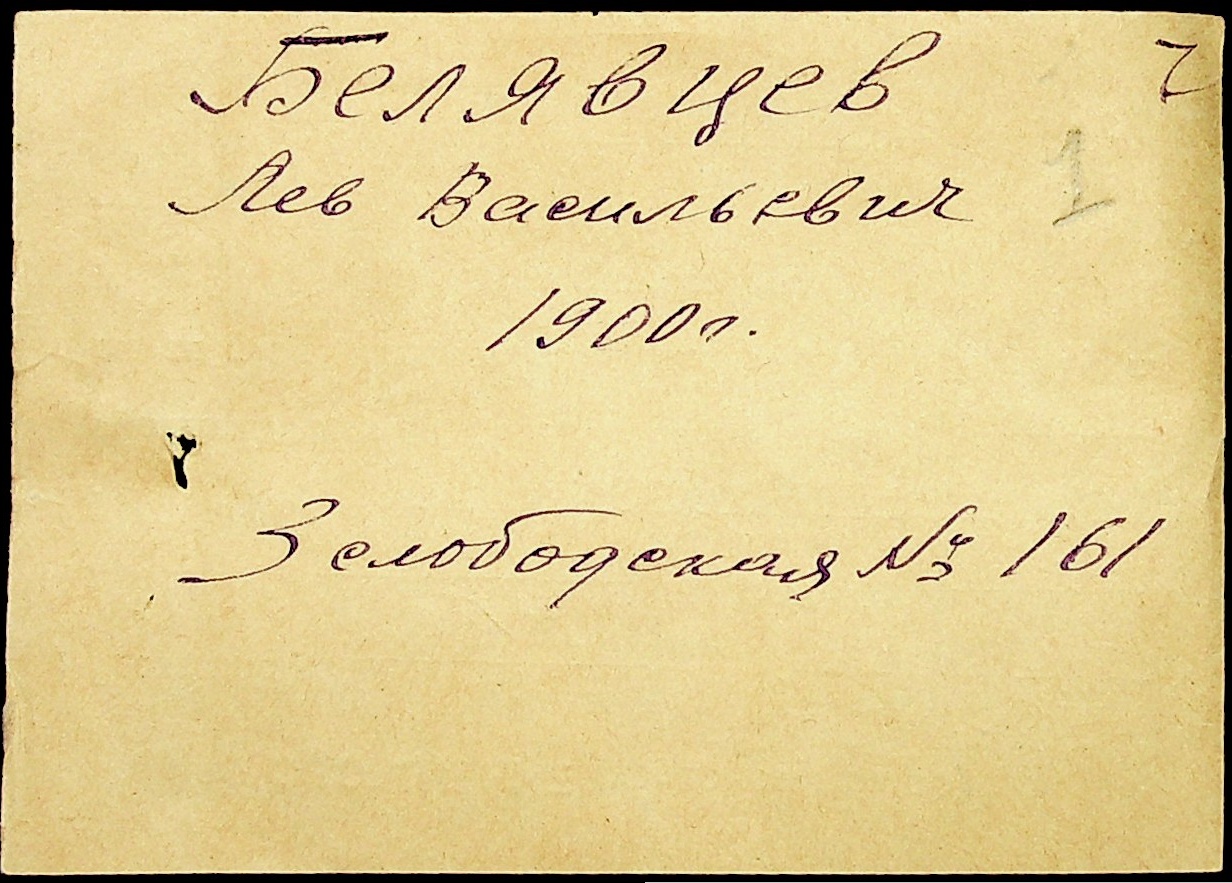 Белявцев
Лев Васильевич
1
1900 г.
Зелободская № 161